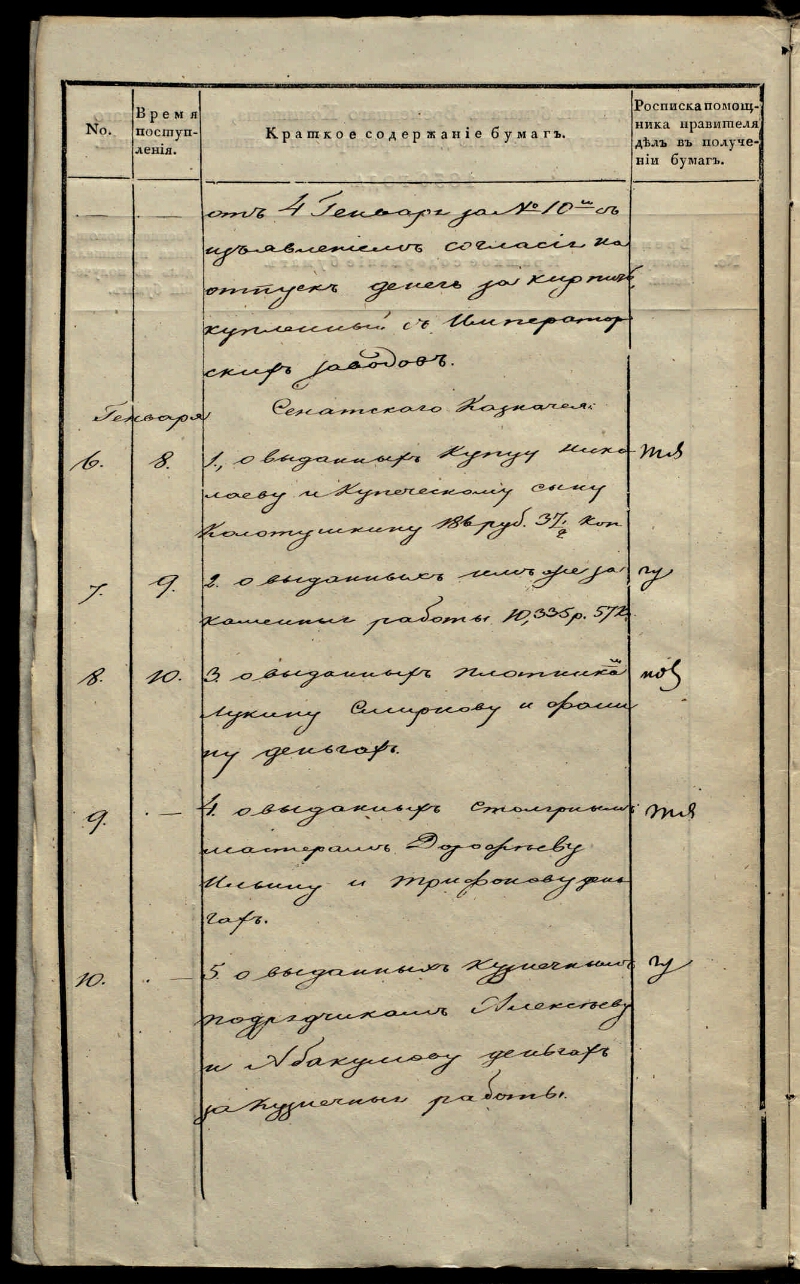 No.
Время поступленія.
Краткое содержаніе бумагъ.
Росписка помощника правителя дѣлъ въ полученіи бумагъ.
отъ 4 Генваря за № 10м съ
изъявленіемъ согласія на
отпускъ денегъ за кирпичъ,
купленный съ Император
скихъ заводовъ.
Генваря Сенатского Казначея:
6. 8. 1., о выданныхъ Купцу Нико
лаеву и Купеческому сыну
Колотушкину 186 руб. 37 1/2 коп
7. 9. 2. о выданныхъ имъ же за
каменныя работы 10,335 р. 57 к.
8. 10. 3. о выданныхъ плотника
Лукину Смирнову и Фоми
ну деньгахъ.
9. — 4. о выданныхъ столярнымъ
мастерамъ Дорофѣеву
Ильину и Трифонову день
гахъ.
10. — 5. о выданныхъ кузнечнымъ
подрядчикамъ Алексѣеву
и Абакумову деньгахъ
за кузнечныя работы.